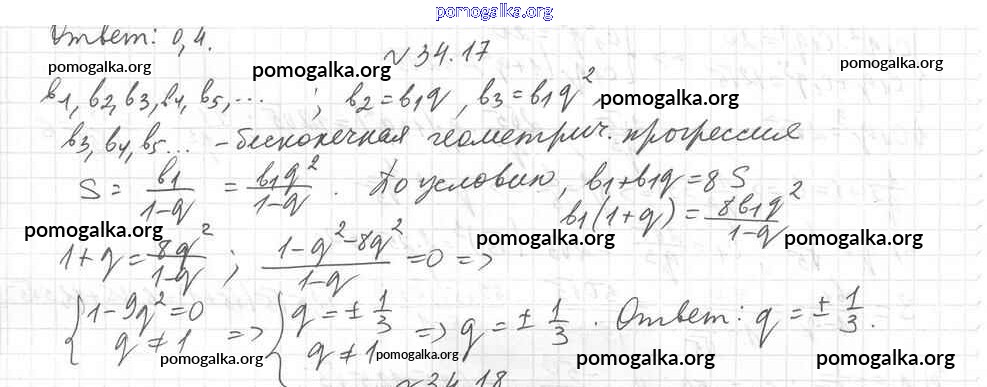 pomogalka.org
Ответ: 0,4.
№34.17
pomogalka.org pomogalka.org pomogalka.org
в1, в2, в3, в4, в5, ... ; в2 = в1q, в3 = в1q²
pomogalka.org
в3, в4, в5... – бесконечная геометрич. прогрессия
S = в1/(1-q) = в1q²/(1-q). По условию, в1+в1q = 8S
в1(1+q) = 8в1q²/(1-q)
pomogalka.org pomogalka.org pomogalka.org
1+q = 8q²/(1-q) ; (1-q²-8q²)/(1-q) = 0 =>
{1-9q²=0 q≠1 => {q=±1/3 q≠1 => q=±1/3. Ответ: q=±1/3.
pomogalka.org pomogalka.org pomogalka.org pomogalka.org
№34.18